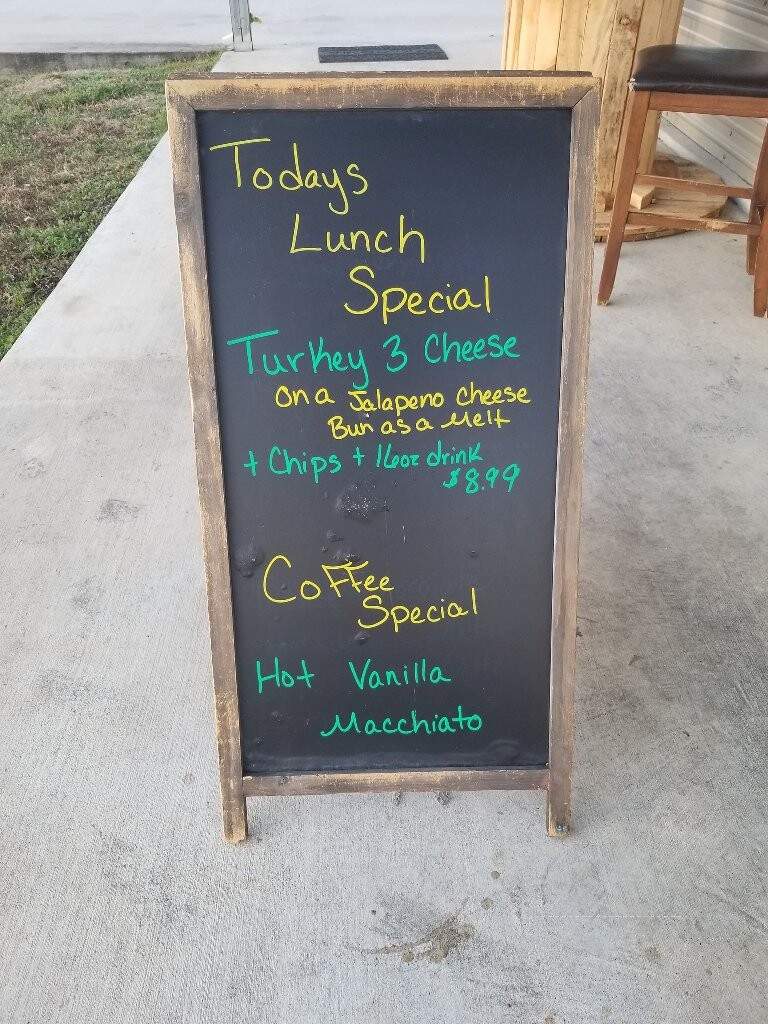 Todays
Lunch
Special
Turkey 3 Cheese
On a Jalapeno Cheese
Bun as a Melt
+ Chips + 16oz drink
$8.99
Coffee
Special
Hot Vanilla
Macchiato